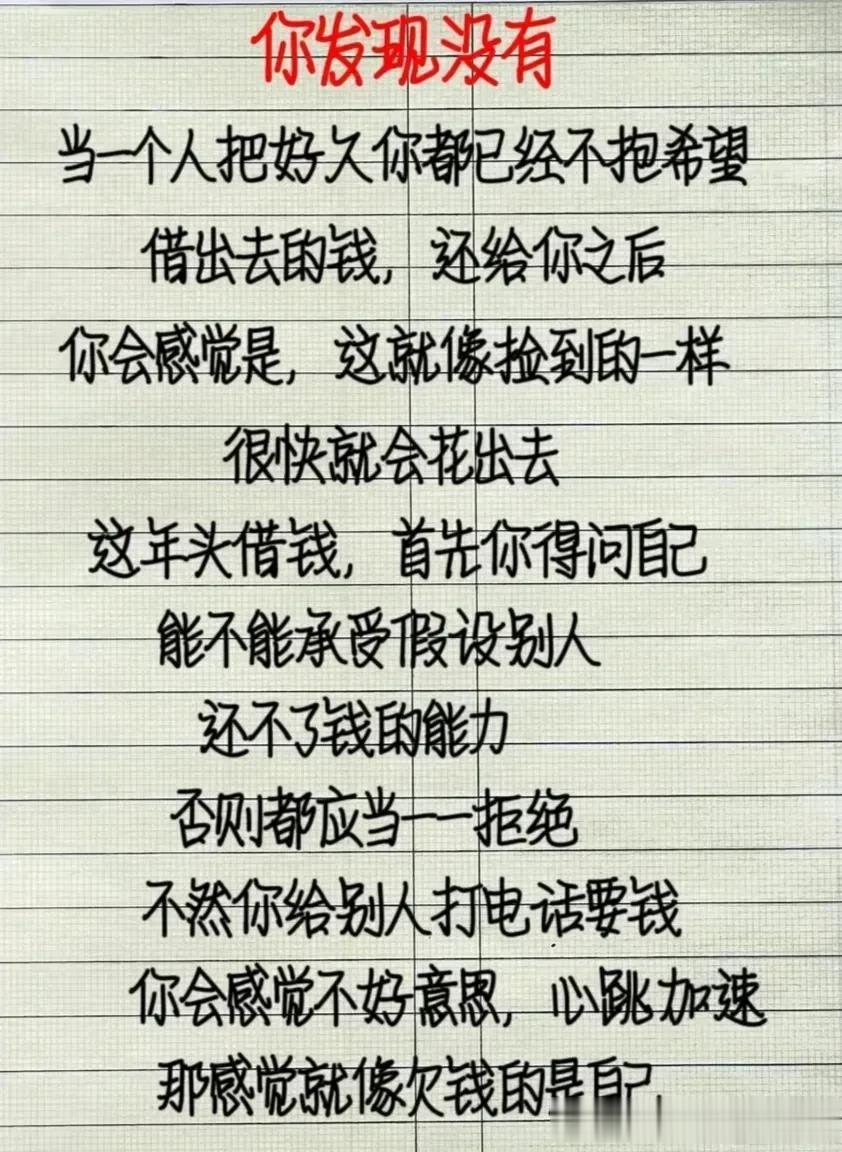 你发现没有
当一个人把好久你都已经不抱希望
借出去的钱，还给你之后
你会感觉是，这就像捡到的一样
很快就会花出去
这年头借钱，首先你得问自己
能不能承受假设别人
还不了钱的能力
否则都应当一一拒绝
不然你给别人打电话要钱
你会感觉不好意思，心跳加速
那感觉就像欠钱的是自己